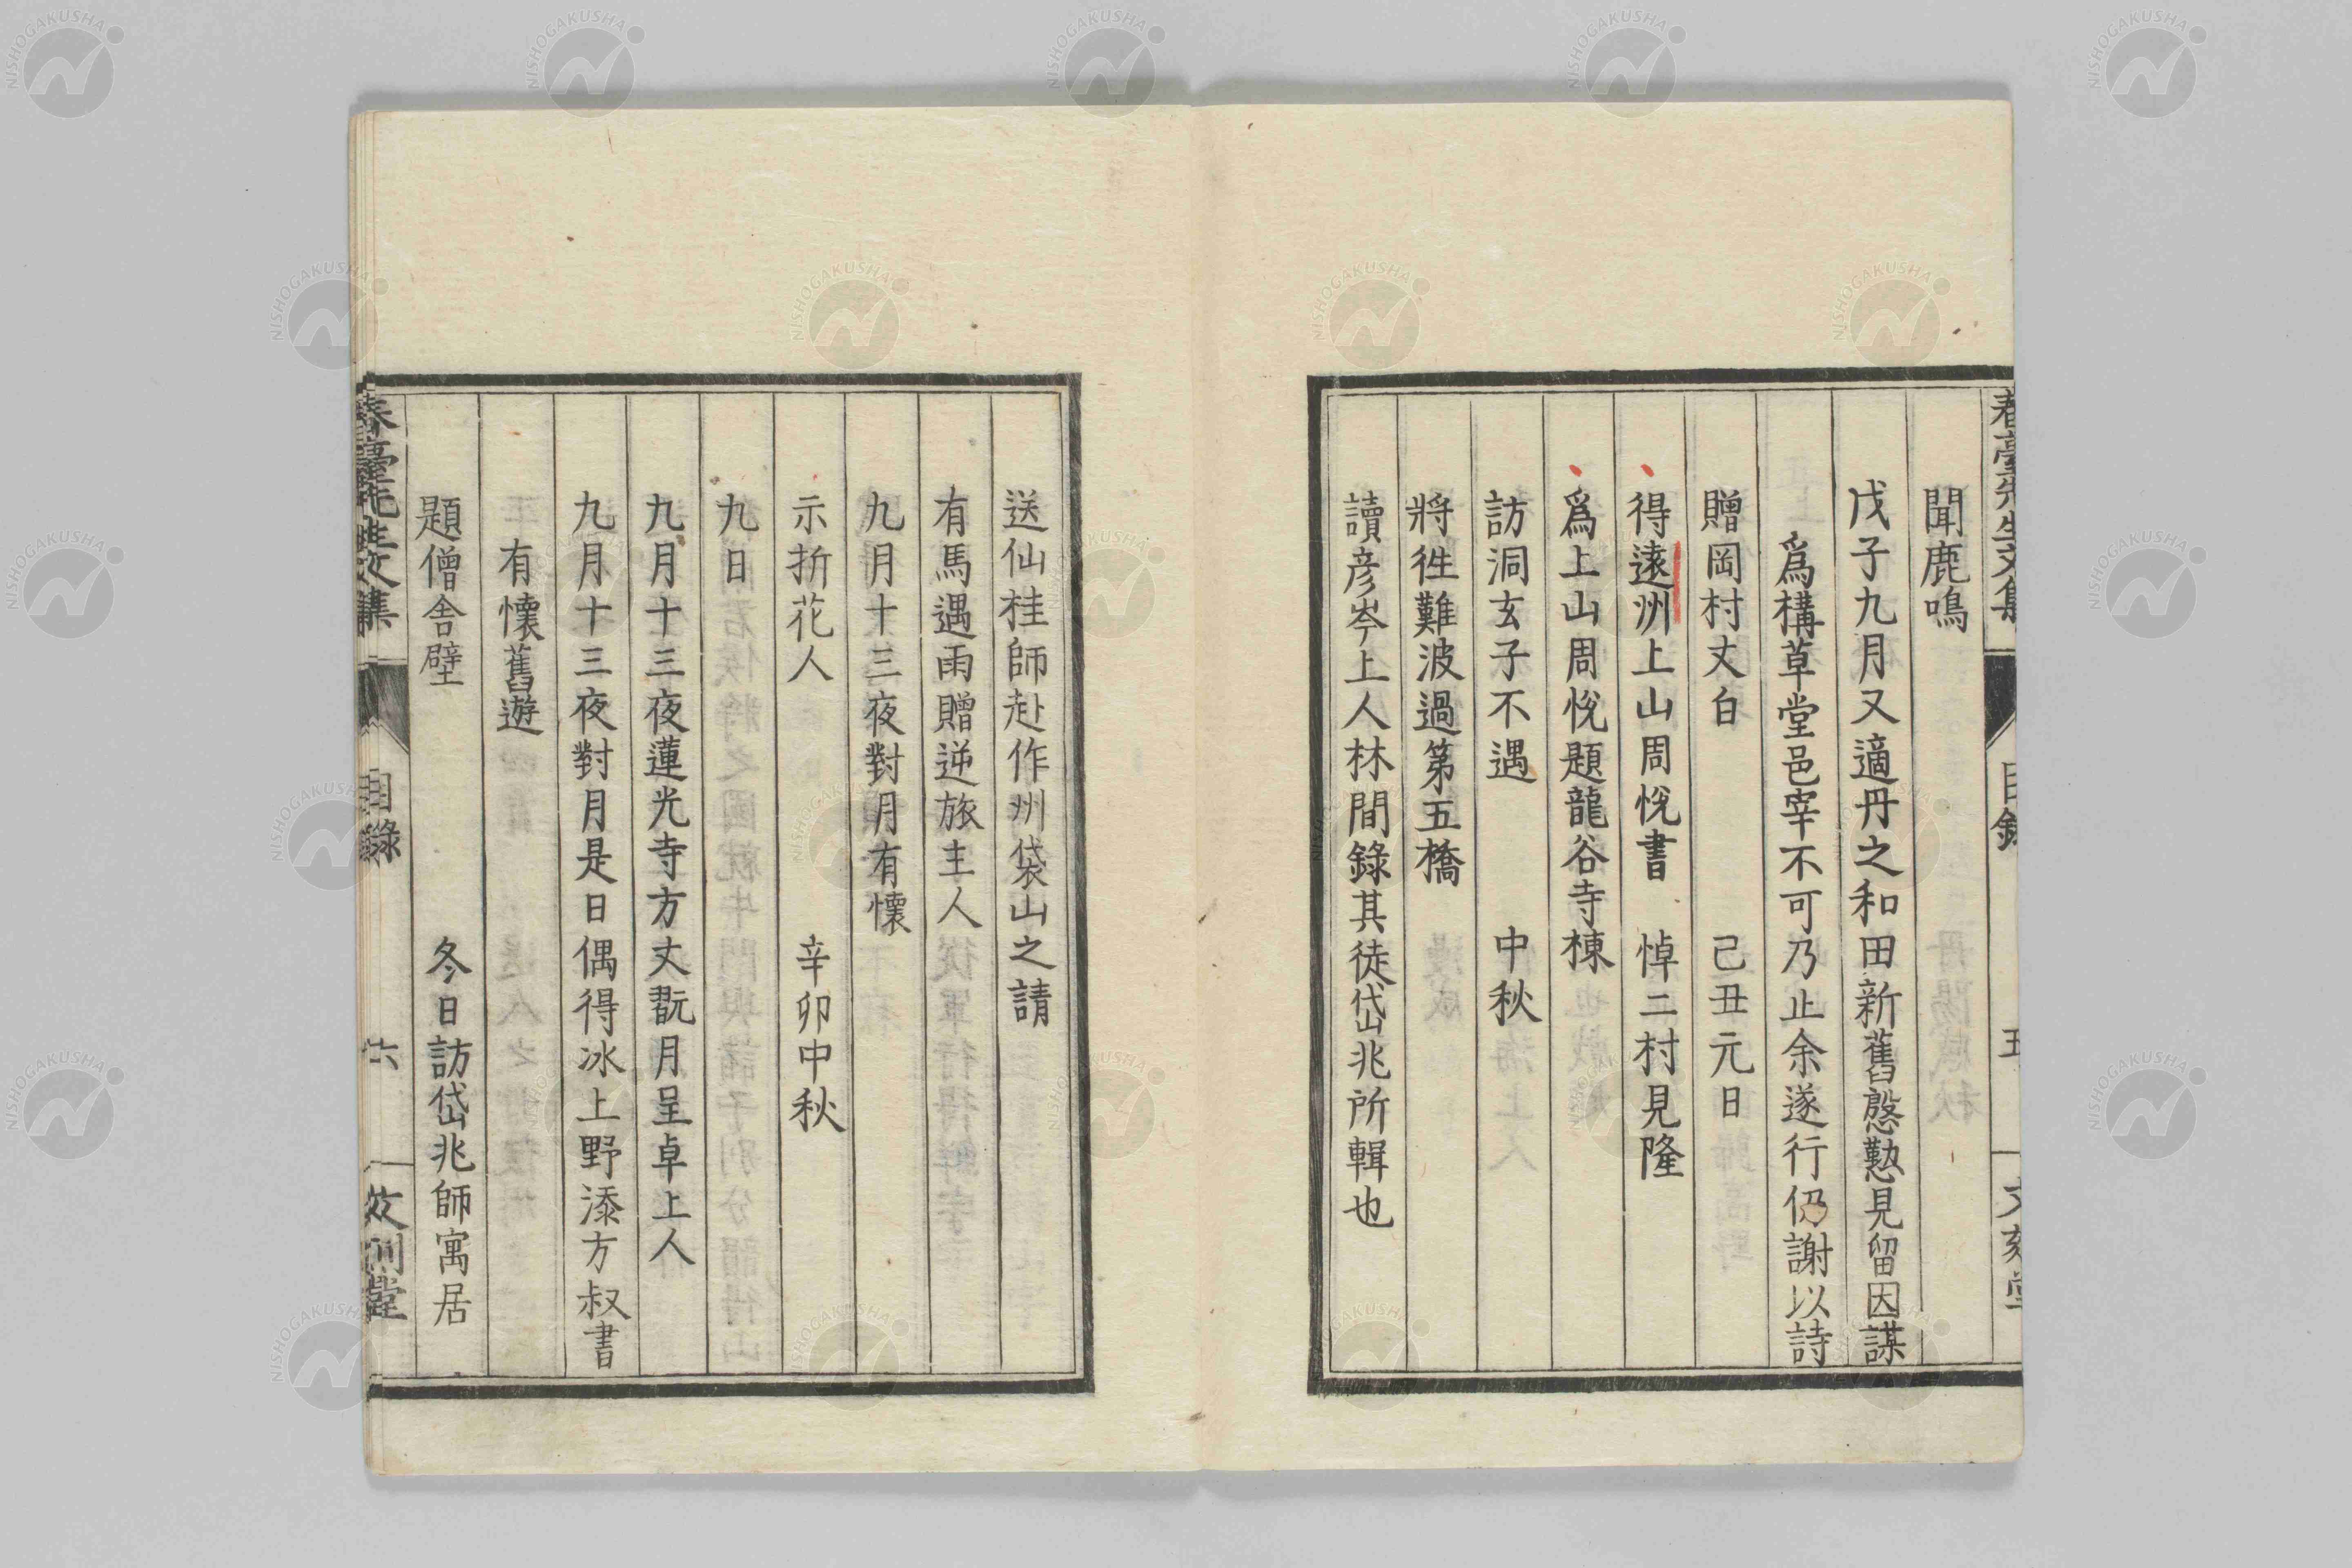 聞鹿鳴
戊子九月又適丹之和田新舊慇懃見留因謀
爲構草堂邑宰不可乃止余遂行仍謝以詩
贈岡村丈白 己丑元日
得遠州上山周悅書 悼二村見隆
爲上山周悅題龍谷寺棟
訪洞玄子不遇 中秋
將徃難波過第五橋
讀彦岑上人林間錄其徒岱兆所輯也
送仙桂師赴作州袋山之請
有馬遇雨贈逆旅主人
九月十三夜對月有懷
示折花人 辛卯中秋
九日
九月十三夜蓮光寺方丈翫月呈卓上人
九月十三夜對月是日偶得冰上野添方叔書
有懷舊遊
題僧舎壁 冬日訪岱兆師寓居
春臺先生文集 目錄 六
NISHOGAKUSHA